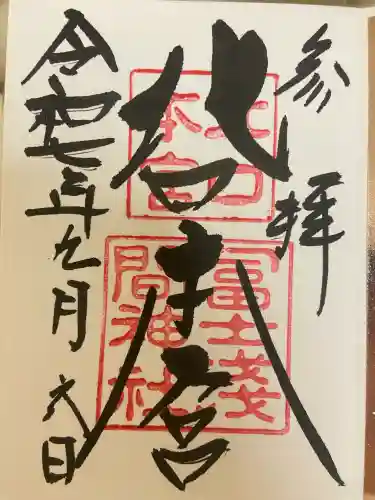 参拝
北口本宮
北口
本宮
冨士淺
間神社
令和七年九月六日